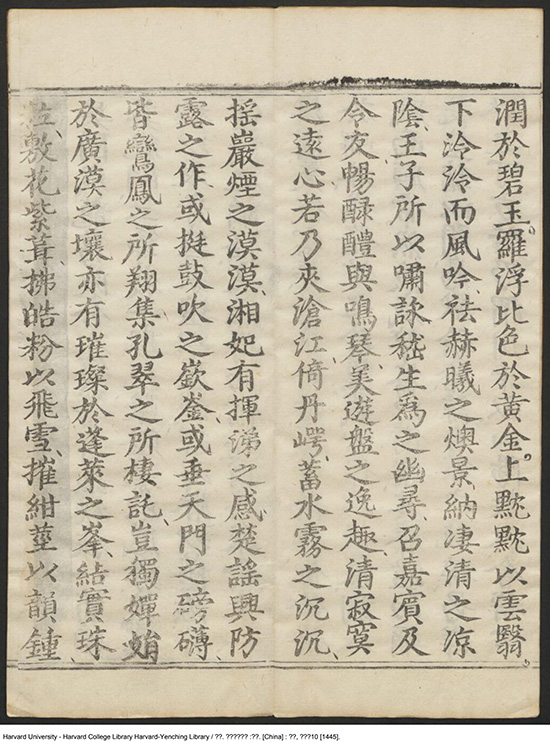 潤於碧玉羅浮比色於黄金上黕黕以雲翳
下泠泠而風吟祛赫曦之燠景納凄清之凉
陰王子所以嘯詠嵇生爲之幽尋召嘉賓及
令友暢醁醴與鳴琴美遊盤之逸趣清寂寞
之遠心若乃夾滄江倚丹崿蓄水霧之沉沉
摇巖煙之漠漠湘妃有揮涕之感楚謡興防
露之作或挺鼓吹之嶔崟或垂天門之磅礴
皆鸞鳳之所翔集孔翠之所棲託豈獨嬋娟
於廣漠之壤亦有璀璨於蓬萊之峯結實珠
粒敷花紫茸拂皓粉以飛雪摧紺莖以韻鍾
Harvard University - Harvard College Library Harvard-Yenching Library / ??. ?????? :??. [China] : ??, ???10 [1445].